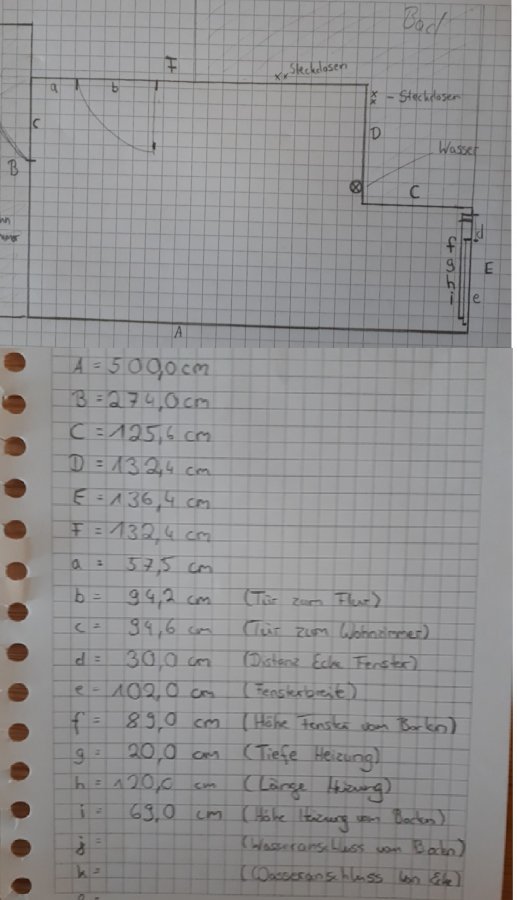 Bad
F
Steckdosen
a b
- Steckdosen
C
D
Wasser
B
C
d
f
g E
h
i e
A
A = 500,0 cm
B = 274,0 cm
C = 125,6 cm
D = 132,4 cm
E = 136,4 cm
F = 132,4 cm
a = 57,5 cm
b = 94,2 cm (Tür zum Flur)
c = 94,6 cm (Tür zum Wohnzimmer)
d = 30,0 cm (Distanz Ecke Fenster)
e = 102,0 cm (Fensterbreite)
f = 89,0 cm (Höhe Fenster vom Boden)
g = 20,0 cm (Tiefe Heizung)
h = 120,0 cm (Länge Heizung)
i = 69,0 cm (Höhe Heizung vom Boden)
j = (Wasseranschluss vom Boden)
k = (Wasseranschluss von Ecke)